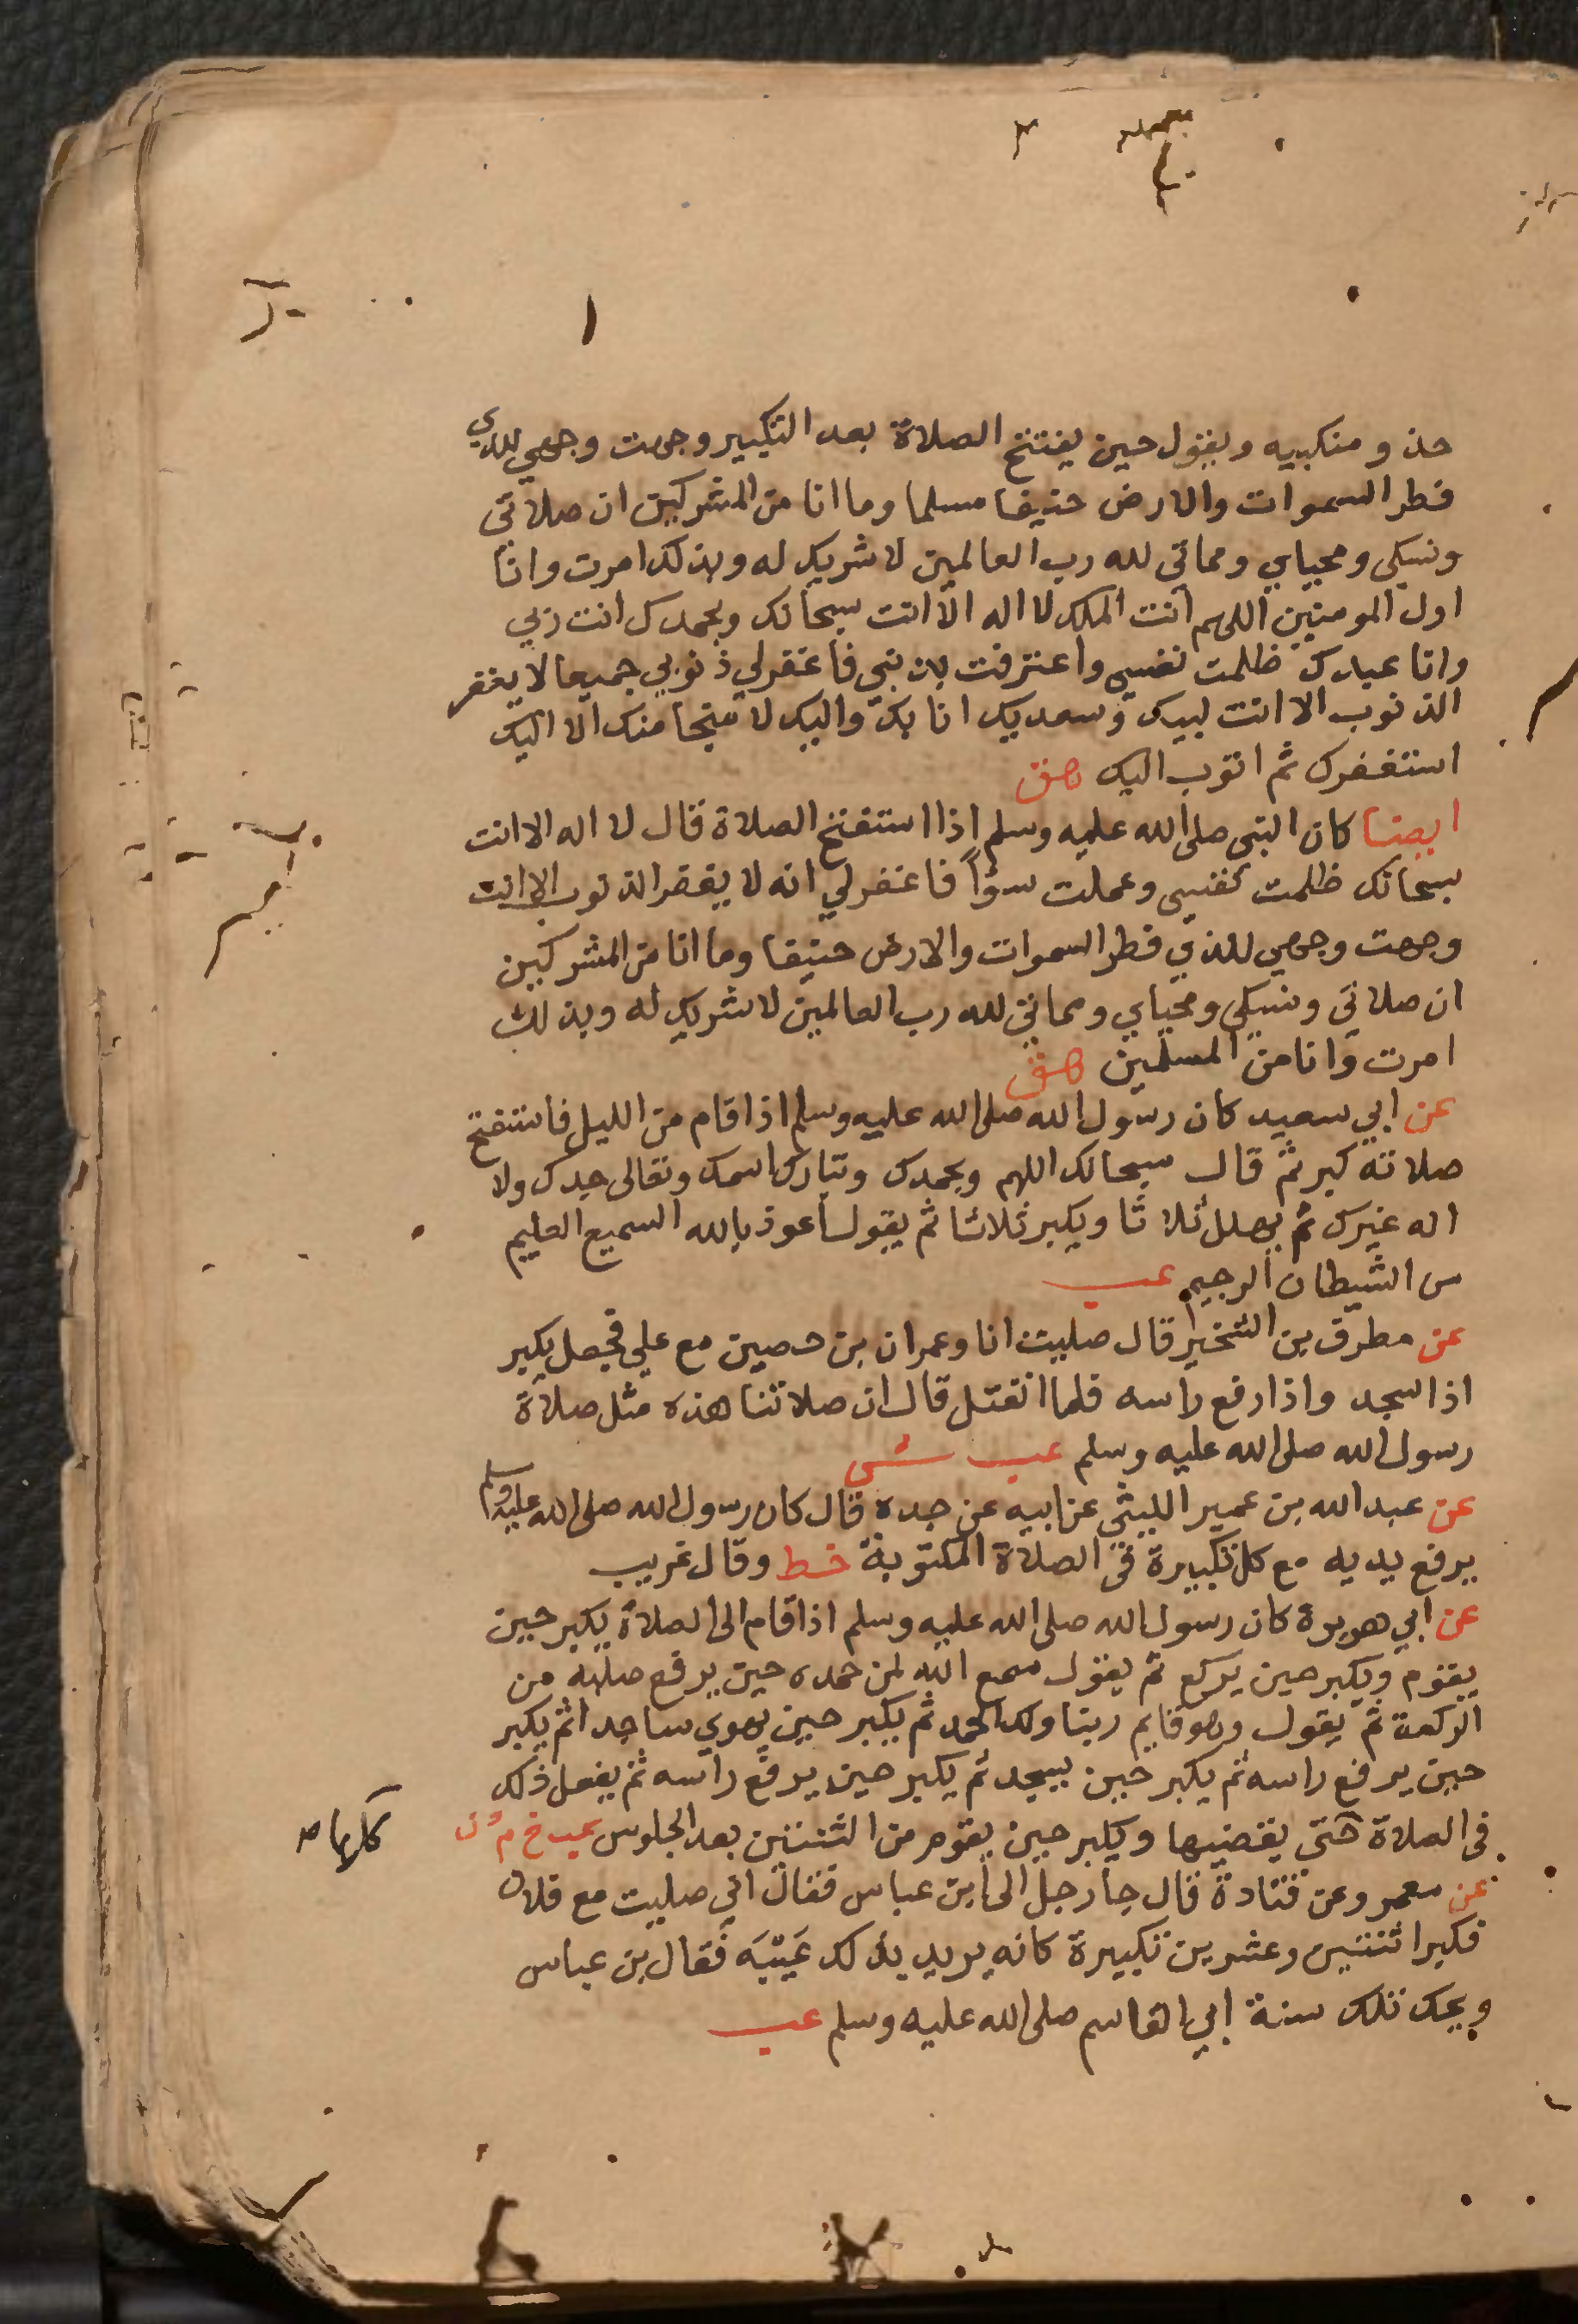 حذو منكبيه ويقول حين يفتتح الصلاة بعد التكبير وجهت وجهي للذي
فطر السموات والارض حنيفا مسلما وما انا من المشركين ان صلاتى
ونسكى ومحياي ومماتى لله رب العالمين لا شريك له وبذلك امرت وانا
اول المومنين اللهم انت الملك لا اله الا انت سبحانك وبحمدك انت ربي
وانا عبدك ظلمت نفسى واعترفت بذنبى فاغفرلي ذنوبي جميعا لا يغفر
الذنوب الا انت لبيك وسعديك انا بك واليك لا منجا منك الا اليك
استغفرك ثم اتوب اليك هق
ايضا كان النبى صلى الله عليه وسلم اذا استفتح الصلاة قال لا اله الا انت
سبحانك ظلمت نفسى وعملت سؤا فاغفرلي انه لا يغفر الذنوب الا انت
وجهت وجهي للذي فطر السموات والارض حنيفا وما انا من المشركين
ان صلاتى ونسكى ومحياي ومماتى لله رب العالمين لا شريك له وبذلك
امرت وانا من المسلمين هق
عن ابي سعيد كان رسول الله صلى الله عليه وسلم اذا قام من الليل فاستفتح
صلاته كبر ثم قال سبحانك اللهم وبحمدك وتبارك اسمك وتعالى جدك ولا
اله غيرك ثم يهلل ثلاثا ويكبر ثلاثا ثم يقول اعوذ بالله السميع العليم
من الشيطان الرجيم عب
عن مطرق بن الشخير قال صليت انا وعمران بن حصين مع علي فجعل يكبر
اذا سجد واذا رفع راسه فلما انفتل قال ان صلاتنا هذه مثل صلاة
رسول الله صلى الله عليه وسلم عب ش
عن عبد الله بن عمير الليثى عن ابيه عن جده قال كان رسول الله صلى الله عليه وسلم
يرفع يديه مع كل تكبيرة فى الصلاة المكتوبة خط وقال غريب
عن ابي هريرة كان رسول الله صلى الله عليه وسلم اذا قام الى الصلاة يكبر حين
يقوم ويكبر حين يركع ثم يقول سمع الله لمن حمده حين يرفع صلبه من
الركعة ثم يقول وهو قايم ربنا ولك الحمد ثم يكبر حين يهوي ساجدا ثم يكبر
حين يرفع راسه ثم يكبر حين يسجد ثم يكبر حين يرفع راسه ثم يفعل ذلك
فى الصلاة حتى يقضيها ويكبر حين يقوم من الثنتين بعد الجلوس عب خ م ن
كلها
عن معمر وعن قتادة قال جا رجل الى ابن عباس فقال اني صليت مع فلان
فكبر اثنتين وعشرين تكبيرة كانه يريد بذلك عَيْبَه فقال بن عباس
ويحك تلك سنة ابي القاسم صلى الله عليه وسلم عب